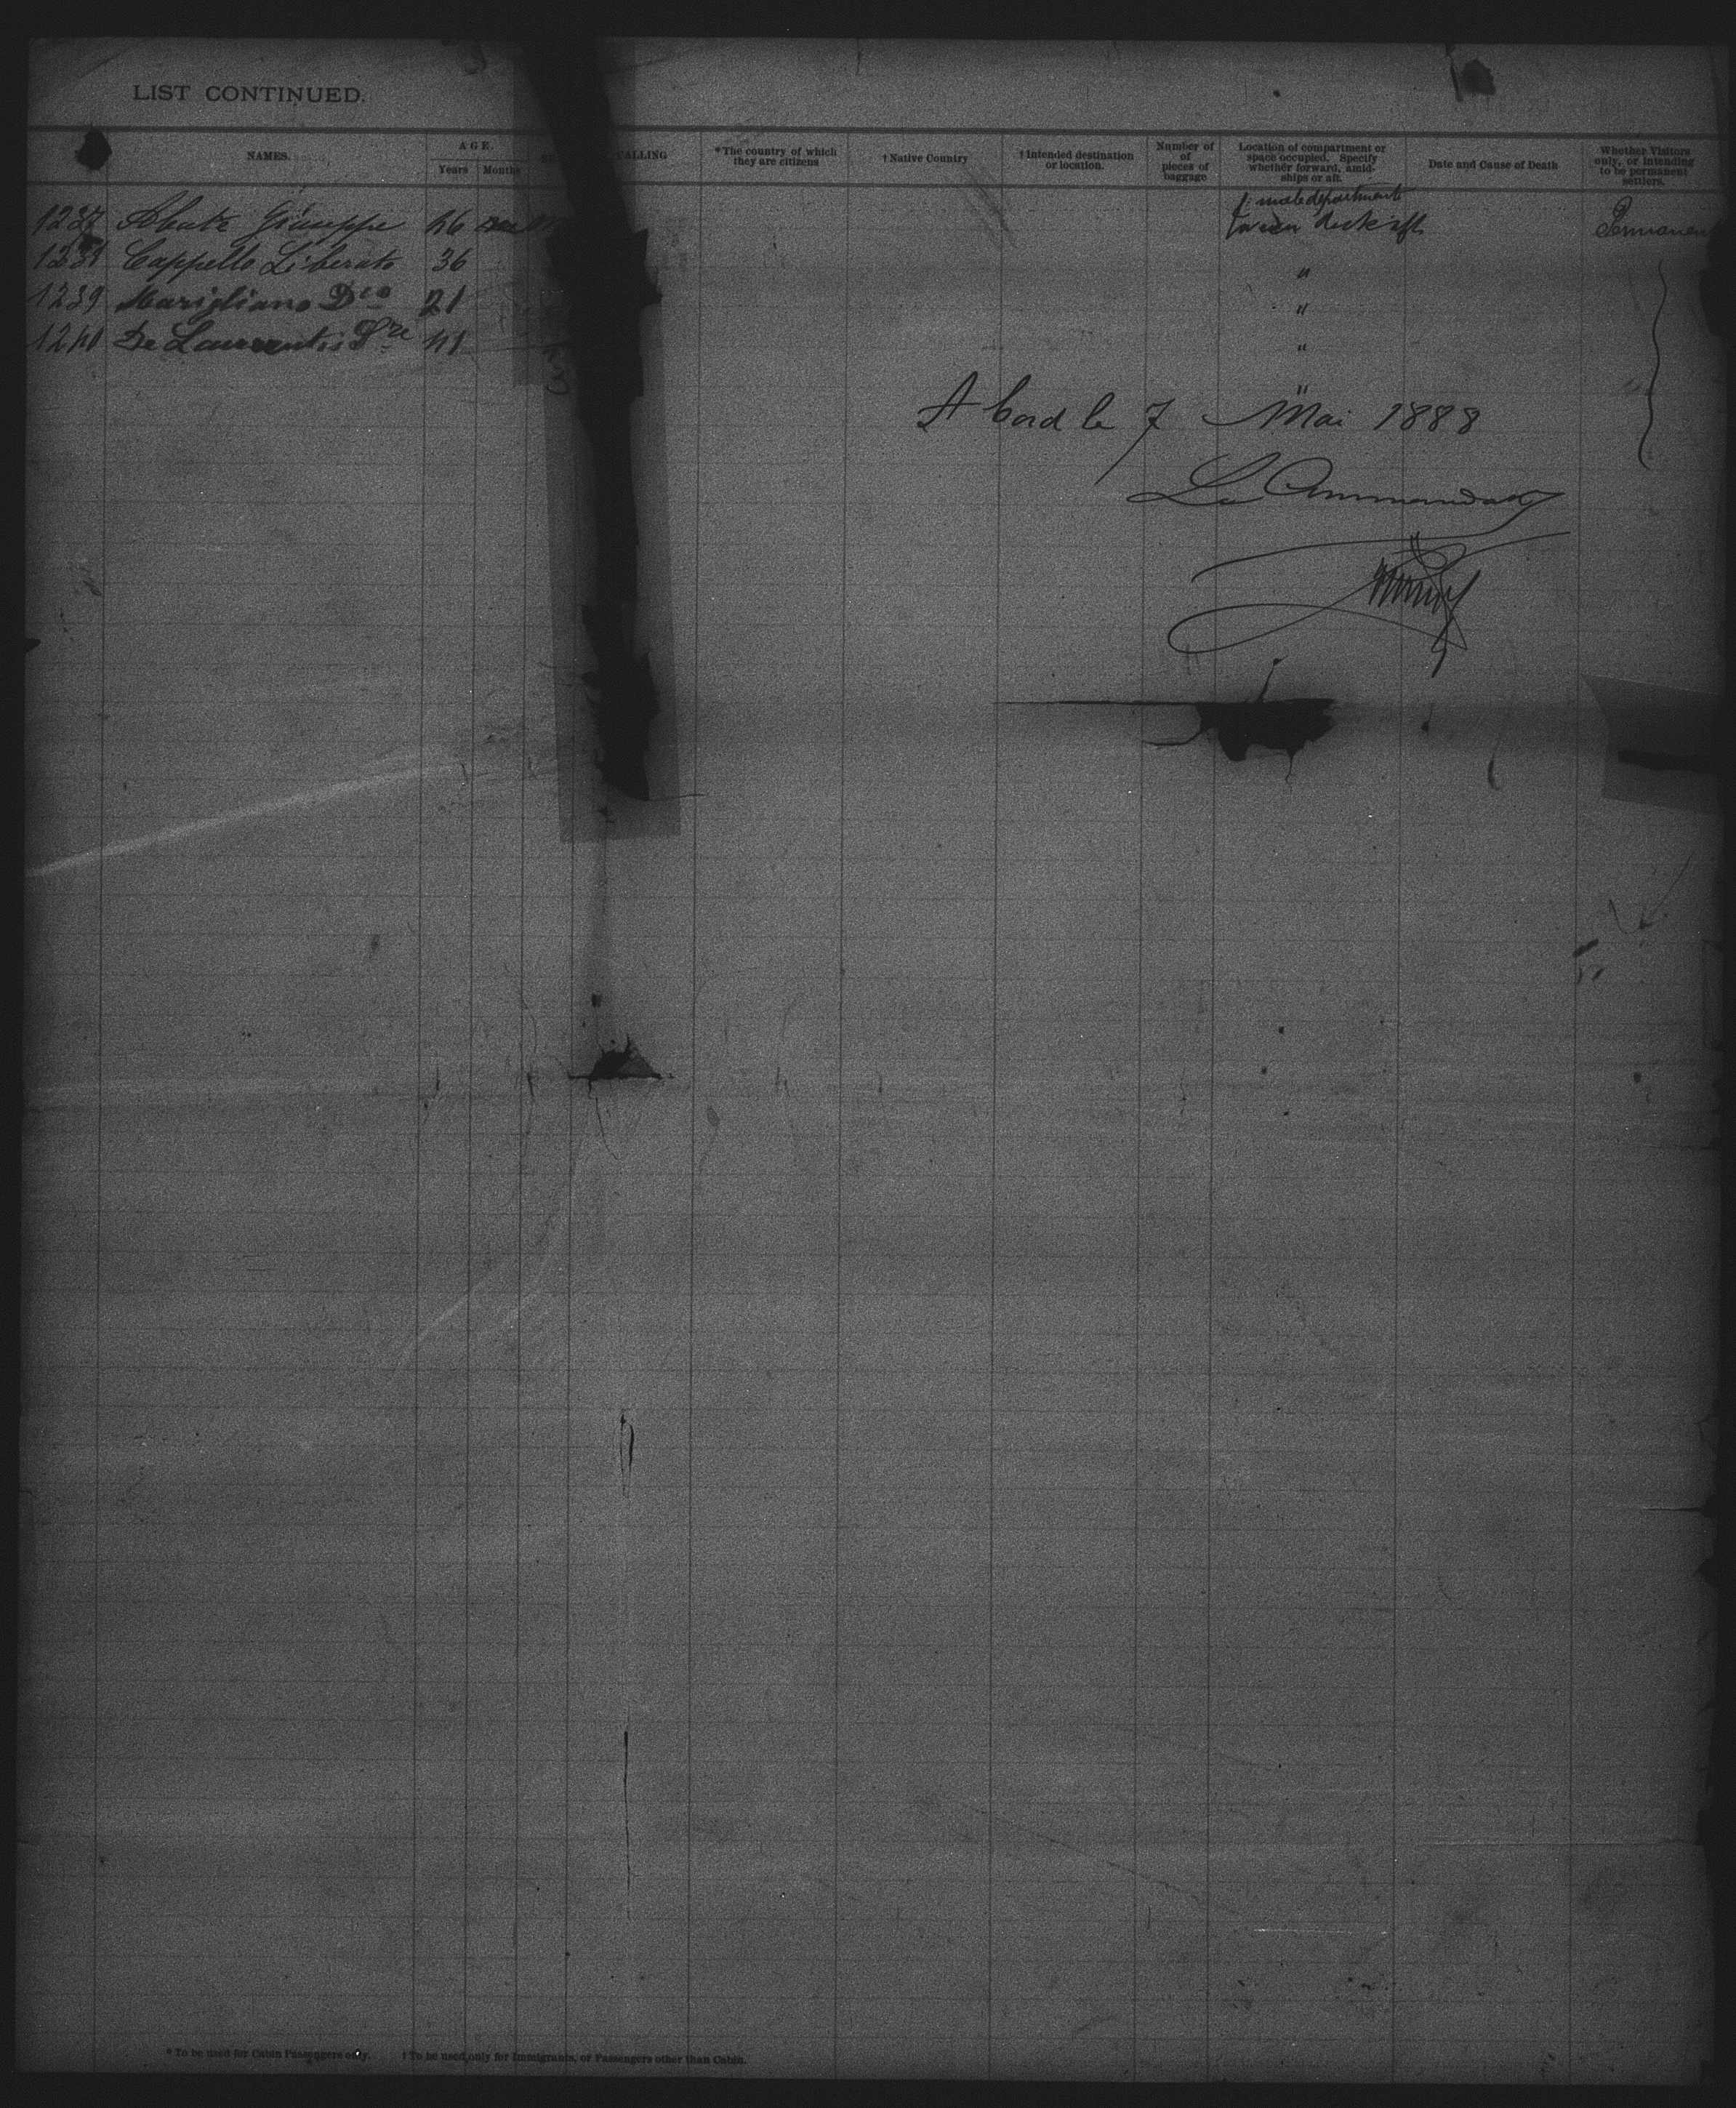 LIST CONTINUED.
NAMES.
AGE.
Years Months
CALLING
*The country of which
they are citizens
†Native Country
†Intended destination
or location.
Number of
of
pieces of
baggage
Location of compartment or
space occupied. Specify
whether forward, amid-
ships or aft.
Date and Cause of Death
Whether Visitors
only, or intending
to be permanent
settlers.
male departments
1237 Abate Giuseppe 26 deck aft Permanen
Cappello Liberato 36 "
1239 Marigliano Dco 21 "
1240 De Laurentis 41 "
"
A bord le 7 Mai 1888
Le Commandant
* To be used for Cabin Passengers only. † To be used only for Immigrants, or Passengers other than Cabin.